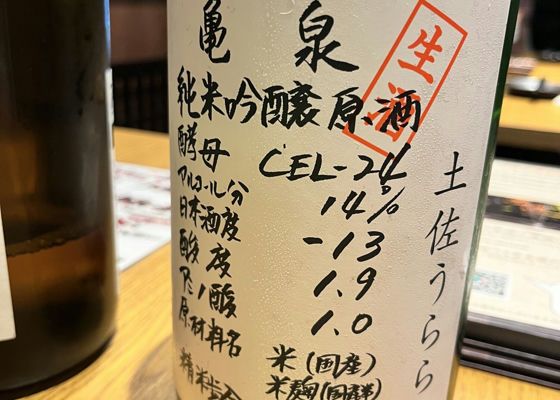 亀泉
生酒
純米吟醸原酒
酵母 CEL-24
アルコール分 14%
日本酒度 -13
酸度 1.9
アミノ酸 1.0
原材料名 米(国産)
米麹(国産米)
精米歩合
土佐うらら